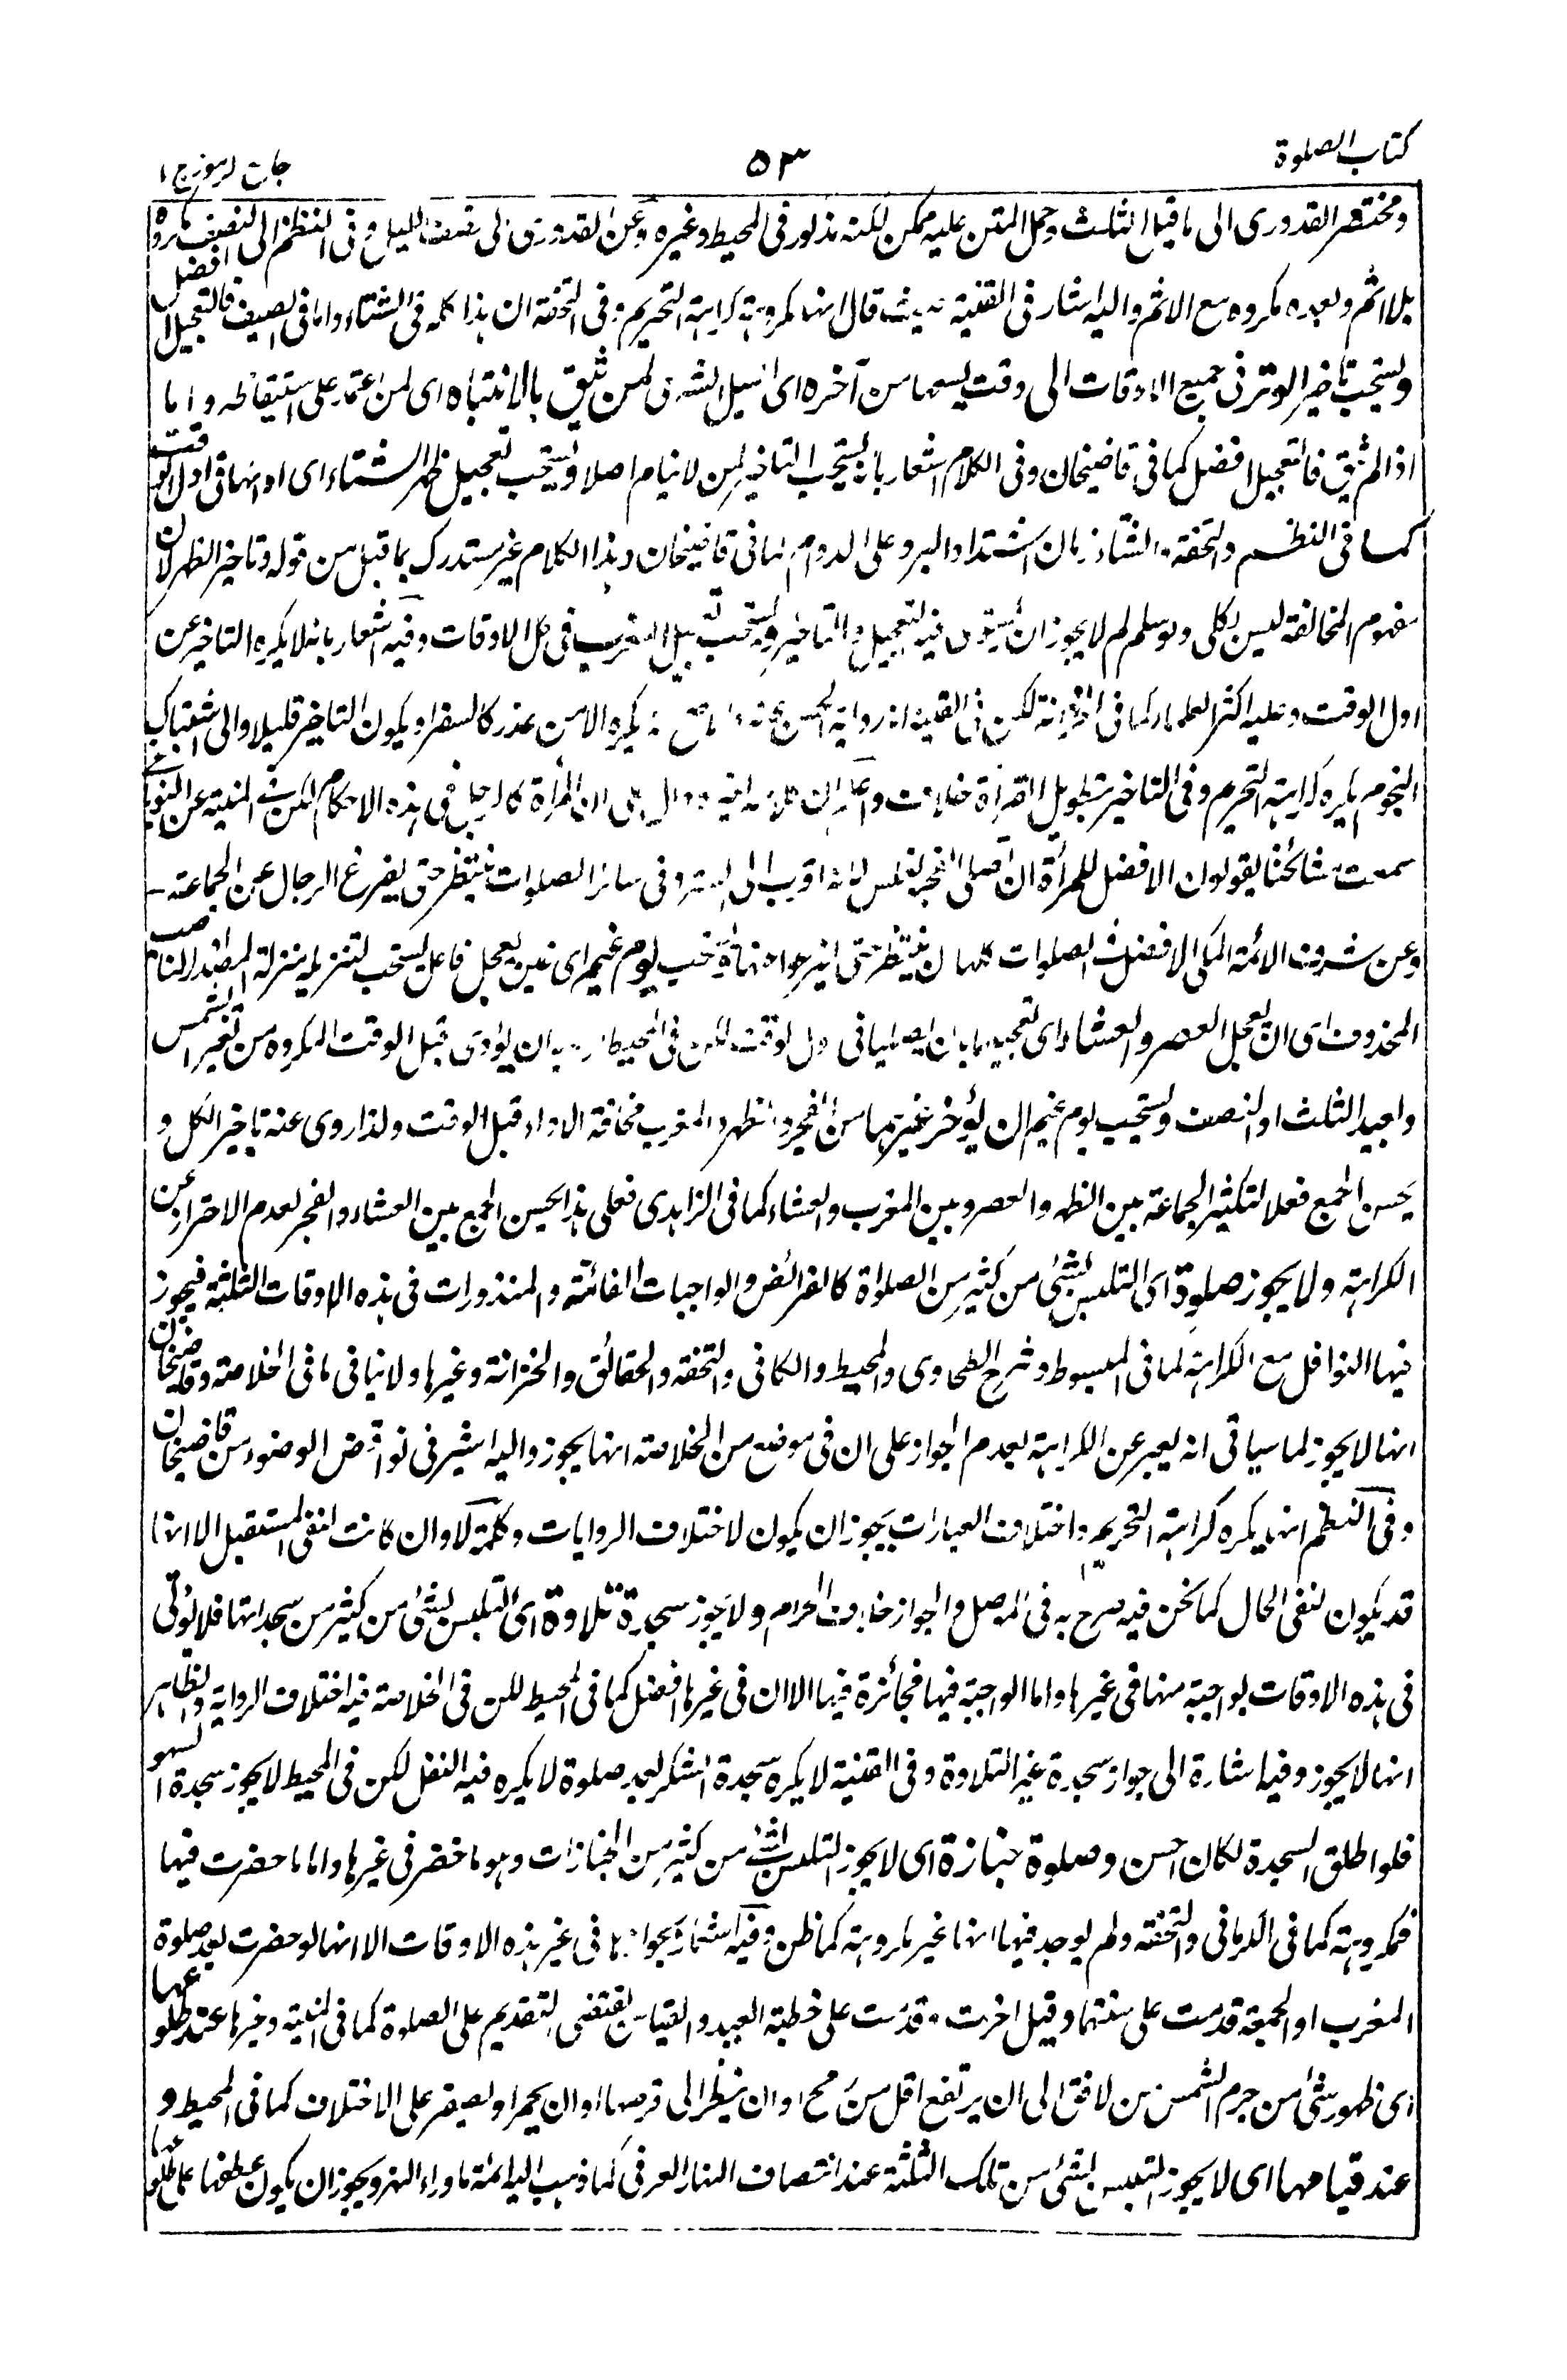 كتاب الصلوة
٥٣
جامع الرموز ج ١
ومختصر القدورى الى ما قبل الثلث وحمل المتن عليه ممكن لكنه مذكور فى المحيط وغيره وعن القدورى الى نصف الليل وفى النظم الى النصف مكروه
بلا اثم وبعده مكروه مع الاثم واليه اشار فى القنية حيث قال انها مكروهة كراهة التحريم وفى التحفة ان هذا كله فى الشتاء واما فى الصيف فالتعجيل افضل
ويستحب تاخير الوتر فى جميع الاوقات الى وقت يسعها من آخره اى الليل لمن يثق بالانتباه اى لمن اعتمد على استيقاظه واما
اذا لم يثق فالتعجيل افضل كما فى قاضيخان وفى الكلام اشعار بانه يستحب التاخير لمن لا ينام اصلا ويستحب تعجيل ظهر الشتاء اى اداؤها فى اول الوقت
كما فى النظم والتحفة والشتاء زمان اشتداد البرد على الدوام كما فى قاضيخان وهذا الكلام غير مستدرك بما قبل من قوله وتاخير الظهر لان
مفهوم المخالفة ليس بكلى ولو سلم لم لا يجوز ان يستوى فيه التعجيل والتاخير ويستحب تعجيل المغرب فى كل الاوقات وفيه اشعار بانه لا يكره التاخير عن
اول الوقت وعليه اكثر العلماء كما فى الخزانة لكن فى القنية ان رواية الحسن عنه انه يكره الا من عذر كالسفر او يكون التاخير قليلا والى اشتباك
النجوم يكره كراهة التحريم وفى التاخير بتطويل القراءة خلاف ان المرأة كالرجل فى هذه الاحكام لكن فى المنية عن
سمعت مشائخنا يقولون الافضل للمرأة ان تصلى الفجر بغلس لانه اقرب الى الستر وفى سائر الصلوات تنتظر حتى يفرغ الرجال عن الجماعة
وعن شرف الائمة المكى الافضل فى الصلوات كلها ان تنتظر حتى يفرغوا منها ويستحب يوم غيم اى غين يعجل فاعل يستحب لتنزيله منزلة المصدر الناصب
المحذوف اى ان يعجل العصر والعشاء اى تعجيلهما بان يصليا فى اول الوقت لكن فى المحيط ان يؤدى قبل الوقت المكروه من تغير الشمس
وبعيد الثلث او النصف ويستحب يوم غيم ان يؤخر غيرهما من الفجر والظهر والمغرب مخافة الاداء قبل الوقت ولذا روى عنه تاخير الكل و
يحسن الجمع فعلا لتكثير الجماعة بين الظهر والعصر وبين المغرب والعشاء كما فى الزاهدى فعلى هذا يحسن الجمع بين العشاء والفجر لعدم الاحتراز عن
الكراهة ولا يجوز صلوة اى التلبس بشئ من كثير من الصلواة كالفرائض والواجبات الفائتة والمنذورات فى هذه الاوقات الثلثة فيجوز
فيها النوافل مع الكراهة كما فى المبسوط وشرح الطحاوى والمحيط والكافى والتحفة والحقائق والخزانة وغيرها ولا ينافى ما فى الخلاصة وقاضيخان
انها لا يجوز لما سياتى انه يعبر عن الكراهة بعدم الجواز على ان فى موضع من الخلاصة انها يجوز واليه اشير فى نواقض الوضوء من قاضيخان
وفى النظم انها يكره كراهة التحريم واختلاف العبارات يجوز ان يكون لاختلاف الروايات وكلمة لا وان كانت لنفى المستقبل الا انها
قد يكون لنفى الحال كما نحن فيه صرح به فى المفصل والجواز خلاف الحرام ولا يجوز سجدة تلاوة اى التلبس بشئ من كثير من سجداتها فلا يؤتى
فى هذه الاوقات بواجبة منها فى غيرها واما الواجبة فيها فجائزة فيها الا ان فى غيرها افضل كما فى المحيط لكن فى الخلاصة فيه اختلاف الرواية والظاهر
انها لا يجوز وفيه اشارة الى جواز سجدة غير التلاوة وفى القنية لا يكره سجدة الشكر بعد صلوة لا يكره فيه النفل لكن فى المحيط لا يجوز سجدة السهو
فلو اطلق السجدة لكان احسن وصلوة جنازة اى لا يجوز التلبس بشئ من كثير من الجنازات وهو ما حضر فى غيرها واما ما حضرت فيها
فمكروهة كما فى الكرمانى والتحفة ولم يوجد فيها انها غير مكروهة كما ظن وفيه اشعار بجوازها فى غير هذه الاوقات الا انها لو حضرت بعد صلوة
المغرب او الجمعة قدمت على سنتهما وقيل اخرت وقدمت على خطبة العيد والقياس يقتضى التقديم على الصلوة كما فى المنية وغيرها عند طلوعها
اى ظهور شئ من جرم الشمس من الافق الى ان يرتفع اقل من رمح او ان ينظر الى قرصها او ان يحمر او يصفر على الاختلاف كما فى المحيط و
عند قيامها اى لا يجوز التلبس بشئ من تلك الثلثة عند انتصاف النهار العرفى كما ذهب اليه ائمة ماوراء النهر ويجوز ان يكون عطفها على طلوعها